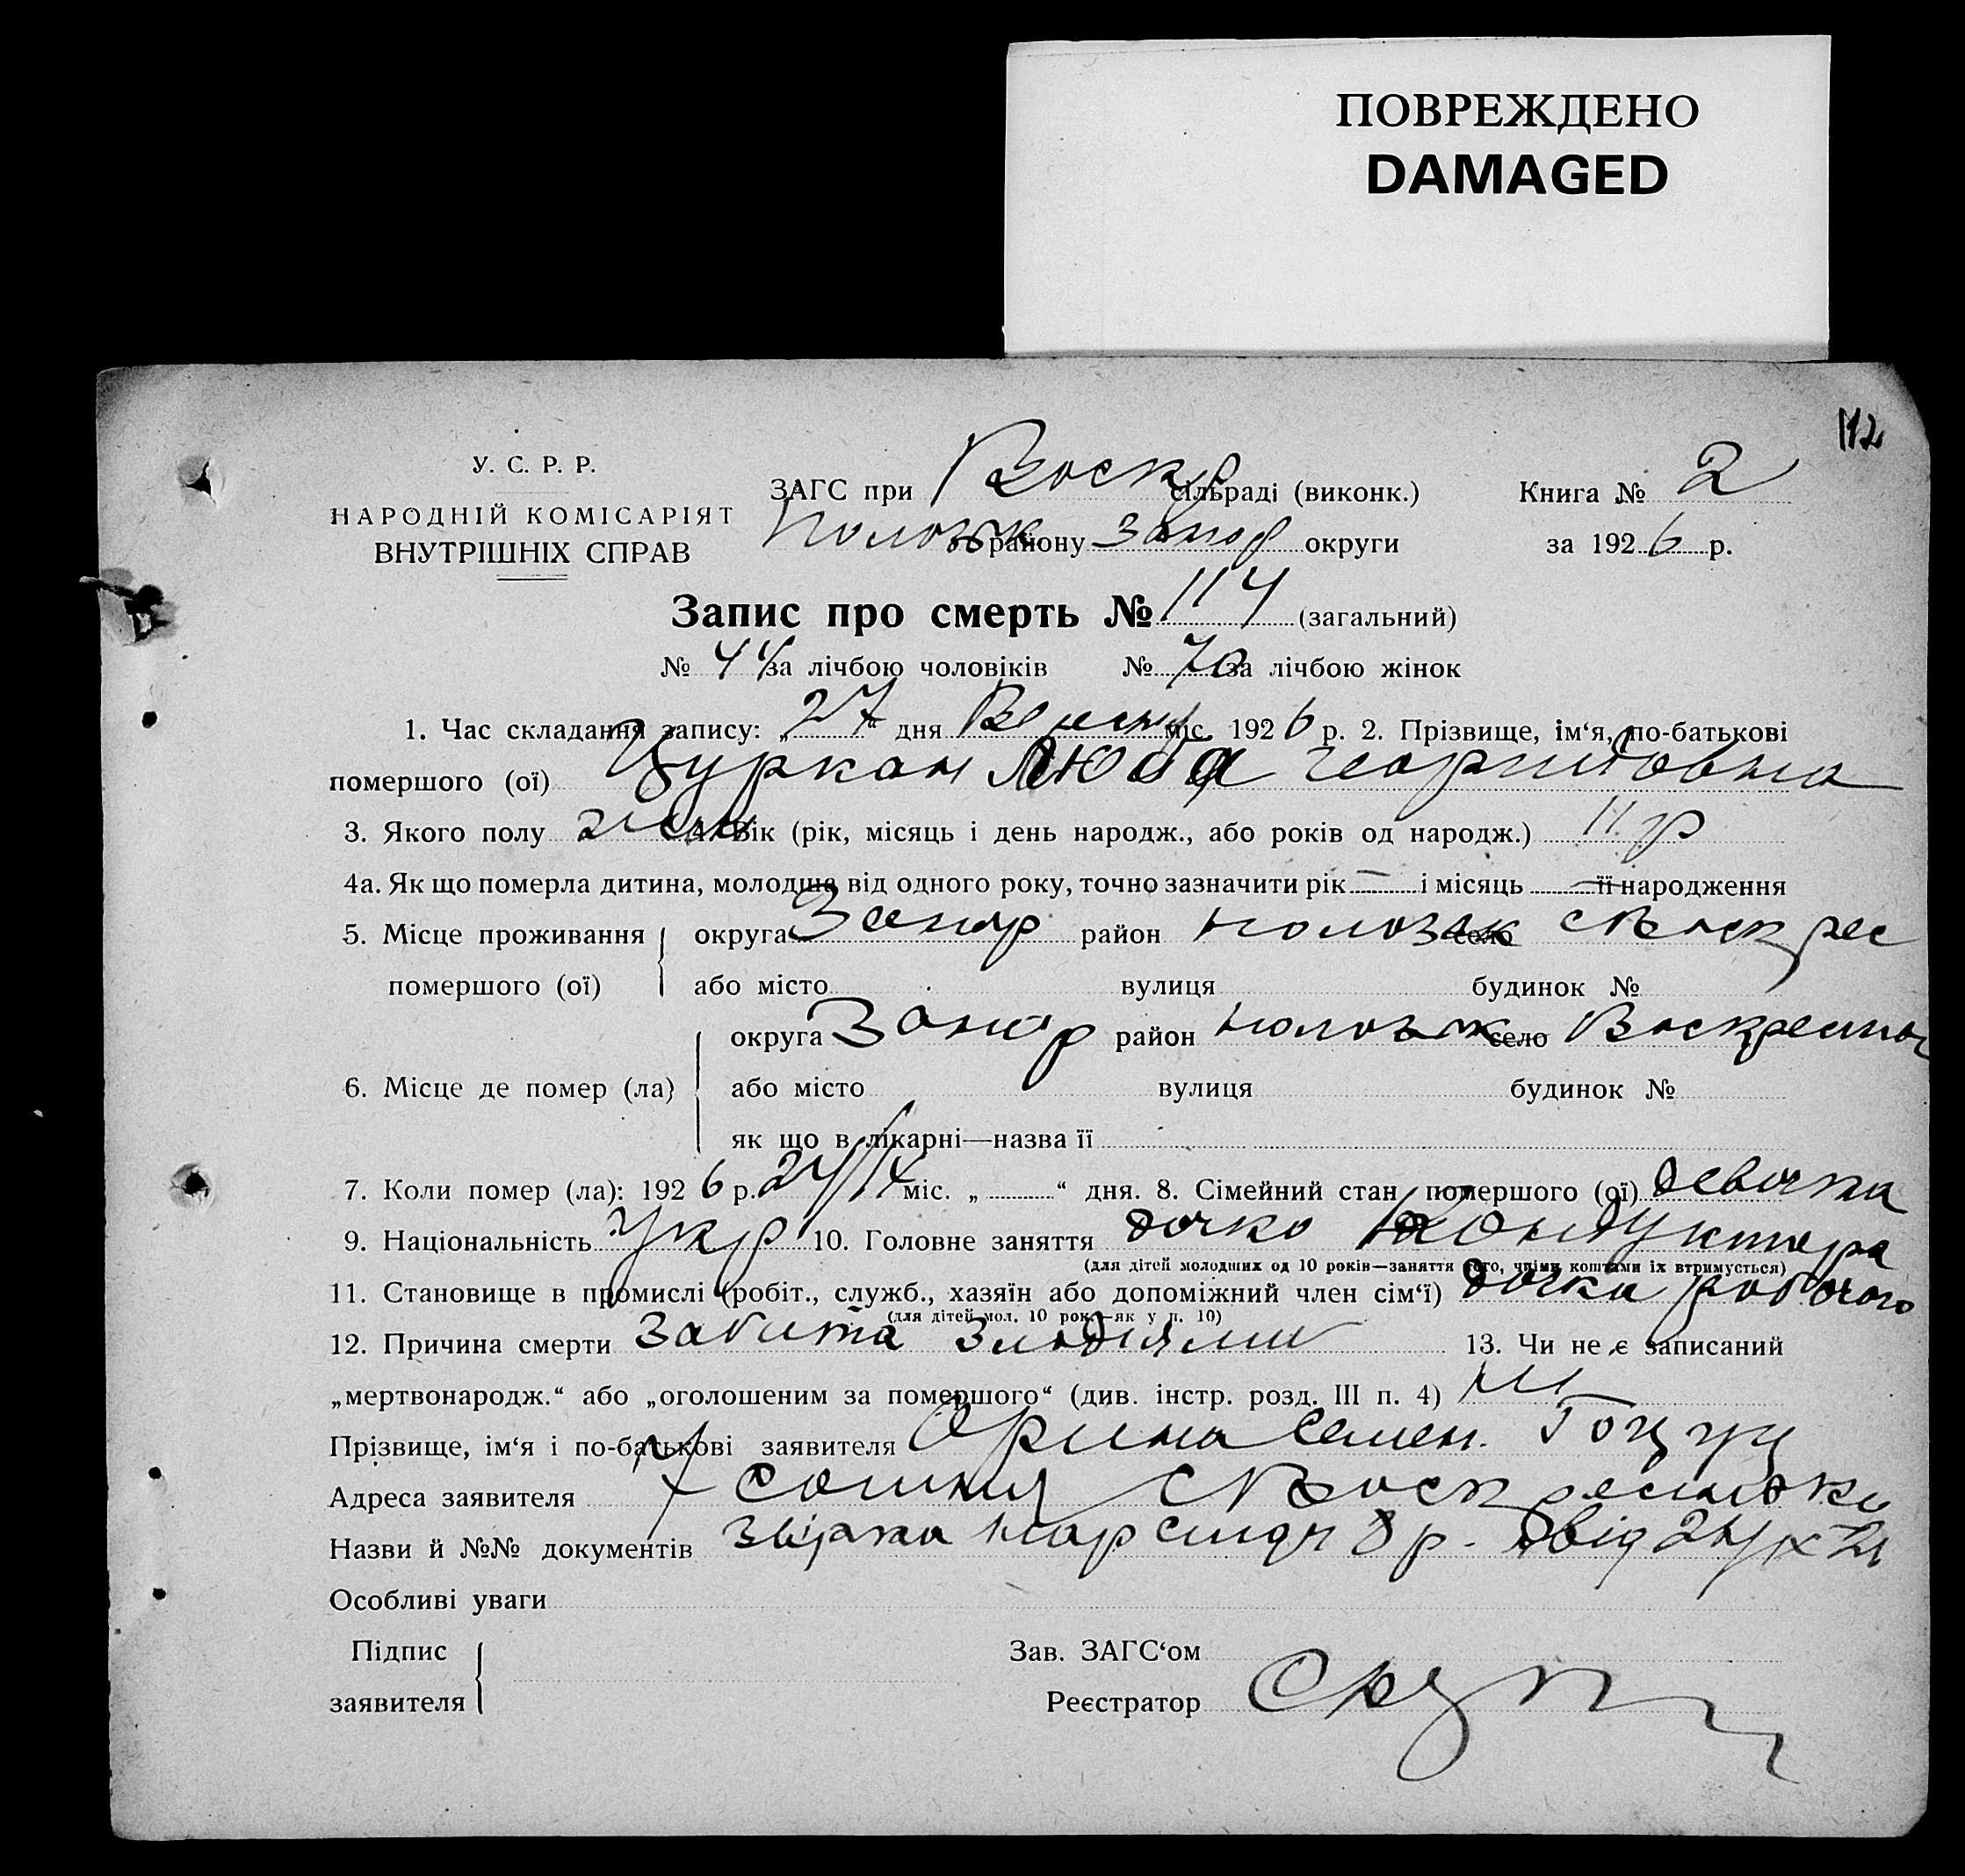 ПОВРЕЖДЕНО
DAMAGED
112
У. С. Р. Р.
НАРОДНІЙ КОМІСАРІЯТ
ВНУТРІШНІХ СПРАВ
ЗАГС при Воскр сільраді (виконк.) Книга № 2
Пологів району Запор округи за 1926 р.
Запис про смерть № 114 (загальний)
№ 44 за лічбою чоловіків № 70 за лічбою жінок
1. Час складання запису: „27“ дня міс. 1926 р. 2. Прізвище, ім‘я, по-батькові
помершого (ої) Цуркан Люба
3. Якого полу жін 4. Вік (рік, місяць і день народж., або років од народж.) 11 р
4а. Як що померла дитина, молодша від одного року, точно зазначити рік — і місяць — її народження
5. Місце проживання округа Запор район село с Воскрес
помершого (ої) або місто вулиця будинок №
округа Запор район село
6. Місце де помер (ла) або місто вулиця будинок №
як що в лікарні—назва її
7. Коли помер (ла): 1926 р. 24/IX міс. „ “ дня. 8. Сімейний стан помершого (ої) девочка
9. Національність Укр 10. Головне заняття дочка Кондуктера
(для дітей молодших од 10 років—заняття того, чиїми коштами їх втримується)
11. Становище в промислі (робіт., служб., хазяїн або допоміжний член сім‘ї) дочка робочого
(для дітей мол. 10 рок.—як у п. 10)
12. Причина смерти Забита злодіями 13. Чи не є записаний
„мертвонародж.“ або „оголошеним за помершого“ (див. інстр. розд. III п. 4) ні
Прізвище, ім‘я і по-батькові заявителя Орина Семен.
Адреса заявителя с
Назви й №№ документів нар 8 р. від 24/IX
Особливі уваги
Підпис Зав. ЗАГС‘ом
заявителя Реєстратор